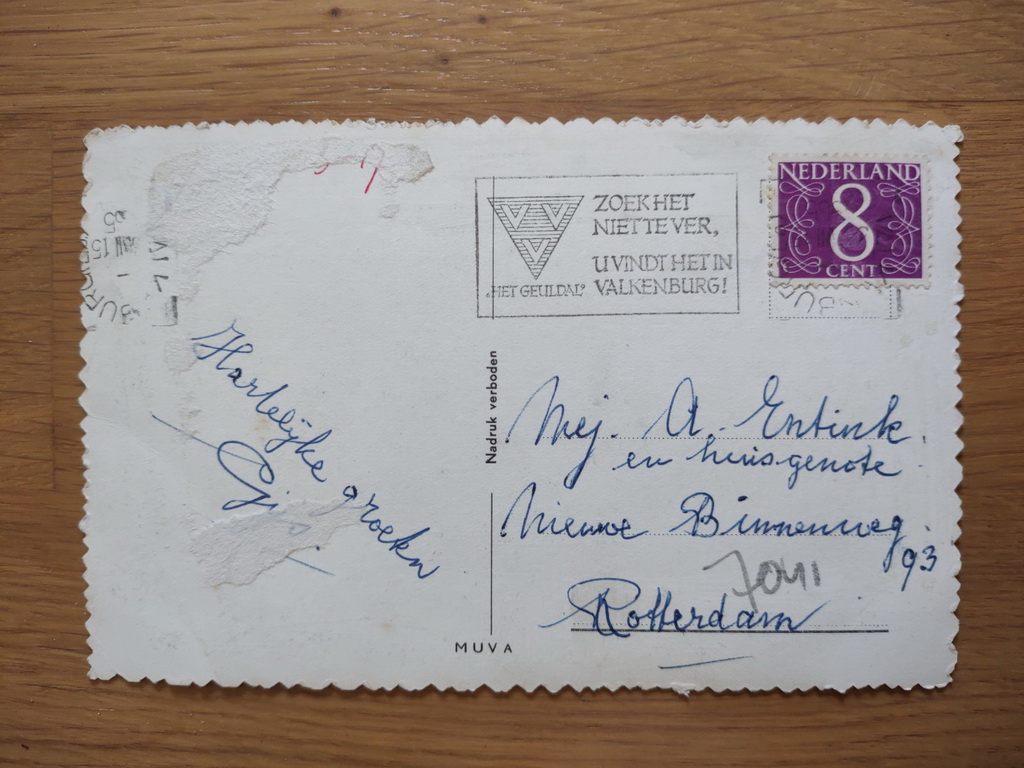 5 7
ZOEK HET
NIET TE VER,
U VINDT HET IN
VALKENBURG!
„HET GEULDAL"
NEDERLAND
8
CENT
Hartelijke groeten
Gijs.
Nadruk verboden
Mej. A. Entink
en huisgenote
Nieuwe Binnenweg
93
Rotterdam
MUVA